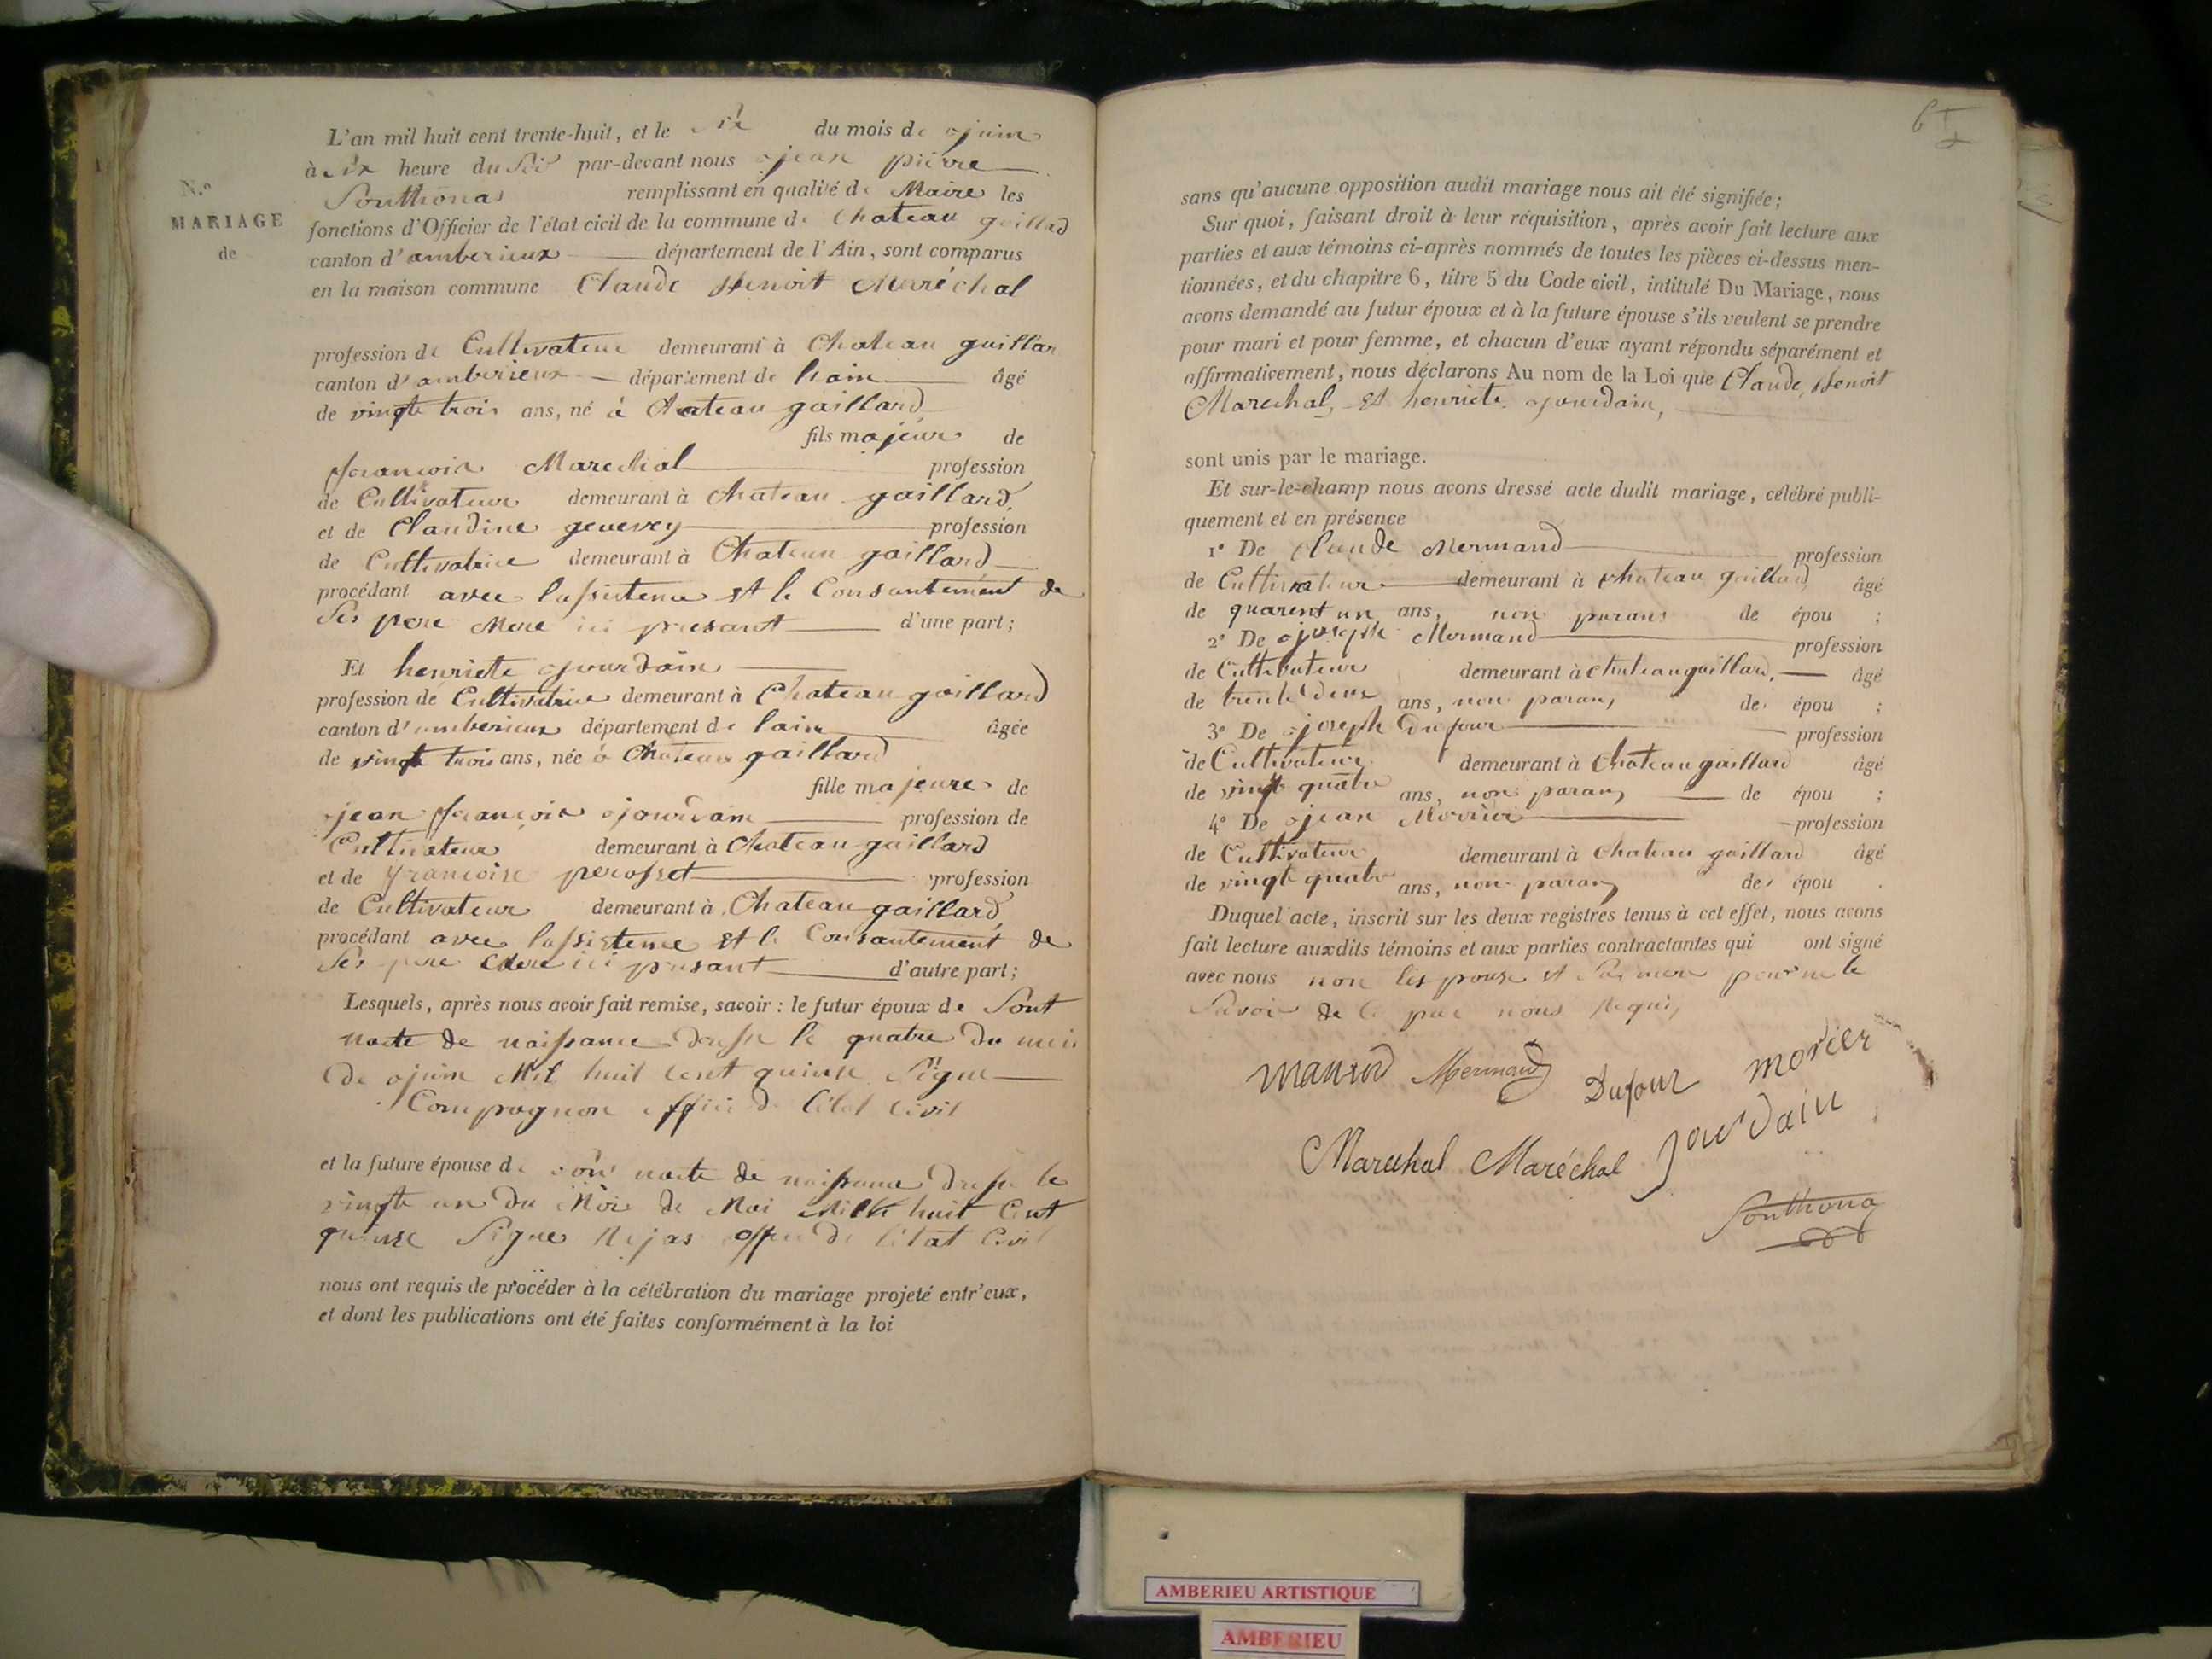 L'an mil huit cent trente-huit, et le six du mois de juin
à six heure du soir par-devant nous jean pierre
Southonas remplissant en qualité de Maire les
N.o
MARIAGE
de
fonctions d'Officier de l'état civil de la commune de Chateau gaillard
canton d'amberieux département de l'Ain, sont comparus
en la maison commune Claude Benoit Maréchal
profession de Cultivateur demeurant à Chateau gaillar
canton d'amberieux département de lain âgé
de vingt trois ans, né à Chateau gaillard
fils majeur de
francois Marechal profession
de Cultivateur demeurant à Chateau gaillard,
et de Claudine genevey profession
de Cultivatrice demeurant à Chateau gaillard
procédant avec lassistence et le Consantement de
ses pere Mere ici presant d'une part;
Et henriete jourdain
profession de Cultivatrice demeurant à Chateau gaillard
canton d'amberieux département de lain âgée
de vingt trois ans, née à Chateau gaillard
fille majeure de
jean francois jourdain profession de
Cultivateur demeurant à Chateau gaillard
et de francoise perosset profession
de Cultivateur demeurant à Chateau gaillard
procédant avec lassistence et le Consantement de
ses pere Mere ici presant d'autre part;
Lesquels, après nous avoir fait remise, savoir: le futur époux de sont
nacte de naissance dresse le quatre du mois
de juin Mil huit cent quinse Signe
Compagnon officie de létat Civil
et la future épouse de son nacte de naissance dresse le
vingt un du Mois de Mai Mille huit Cent
quinse Signe offi de létat Civil
nous ont requis de procéder à la célébration du mariage projeté entr'eux,
et dont les publications ont été faites conformément à la loi
sans qu'aucune opposition audit mariage nous ait été signifiée;
Sur quoi, faisant droit à leur réquisition, après avoir fait lecture aux
parties et aux témoins ci-après nommés de toutes les pièces ci-dessus men-
tionnées, et du chapitre 6, titre 5 du Code civil, intitulé Du Mariage, nous
avons demandé au futur époux et à la future épouse s'ils veulent se prendre
pour mari et pour femme, et chacun d'eux ayant répondu séparément et
affirmativement, nous déclarons Au nom de la Loi que Claude, Benoit
Marechal, Et henriete jourdain,
sont unis par le mariage.
Et sur-le-champ nous avons dressé acte dudit mariage, célébré publi-
quement et en présence
1º De Claude Mermand profession
de Cultivateur demeurant à Chateau gaillard âgé
de quarent un ans, non parans de épou ;
2º De joseph Mermand profession
de Cultivateur demeurant à Chateau gaillard, âgé
de trente deux ans, non paran, de épou ;
3º De joseph Dufour profession
de Cultivateur demeurant à Chateau gaillard âgé
de vingt quatre ans, non paran, de épou ;
4º De jean Morrier profession
de Cultivateur demeurant à Chateau gaillard âgé
de vingt quatre ans, non paran, de épou .
Duquel acte, inscrit sur les deux registres tenus à cet effet, nous avons
fait lecture auxdits témoins et aux parties contractantes qui ont signé
avec nous non lépouse et sa mere pour ne le
savoir de ce par nous requi,
Mermand Dufour morier
Marechal Maréchal Jourdain
Southonas
AMBERIEU ARTISTIQUE
AMBERIEU